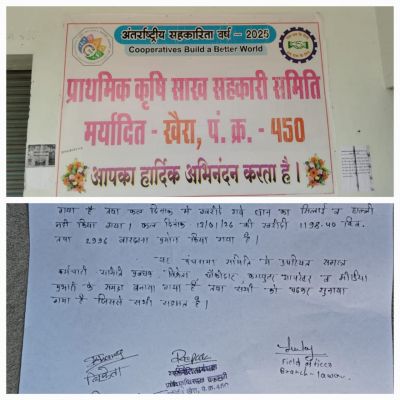 अंतर्राष्ट्रीय सहकारिता वर्ष - 2025
Cooperatives Build a Better World
प्राथमिक कृषि साख सहकारी समिति
मर्यादित - खैरा, पं. क्र. - 450
आपका हार्दिक अभिनंदन करता है।
गया है तथा कल दिनांक में खरीदी गये धान का सिलाई व
नहीं किया गया। कल दिनांक 12/01/26 की खरीदी 1198.40 क्वि.
तथा 2996 बारदाना प्रदान किया गया है।
यह पंचनामा समिति में उपस्थित समस्त
कर्मचारी प्रबंधक, विक्रेता, चौकीदार, कम्प्यूटर आपरेटर व मीडिया
प्रभारी के समक्ष बनाया गया है तथा सभी को पढ़कर सुनाया
गया है जिसमें सभी सहमत है।
विक्रेता
Field officer
Branch-